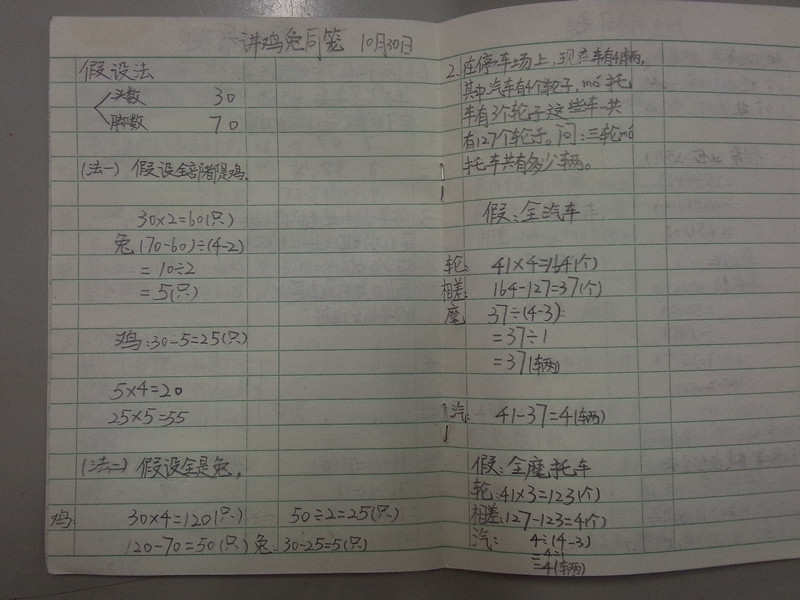 讲鸡兔同笼 10月30日
假设法
头数 30
脚数 70
(法一) 假设全部都是鸡.
30×2=60(只)
兔(70-60)÷(4-2)
=10÷2
=5(只)
鸡:30-5=25(只)
5×4=20
25×5=55
(法二) 假设全是兔,
鸡: 30×4=120(只) 50÷2=25(只)
120-70=50(只) 兔:30-25=5(只)
2.在停车场上,现在车有41辆,
其中汽车有4个轮子,mó托
车有3个轮子这些车一共
有127个轮子。问:三轮mó
托车共有多少车两。
假:全汽车
轮: 41×4=164(个)
相差: 164-127=37(个)
摩 37÷(4-3)
=37÷1
=37(车两)
汽: 41-37=4(车两)
假:全摩托车
轮:41×3=123(个)
相差:127-123=4(个)
汽: 4÷(4-3)
=4÷1
=4(车两)